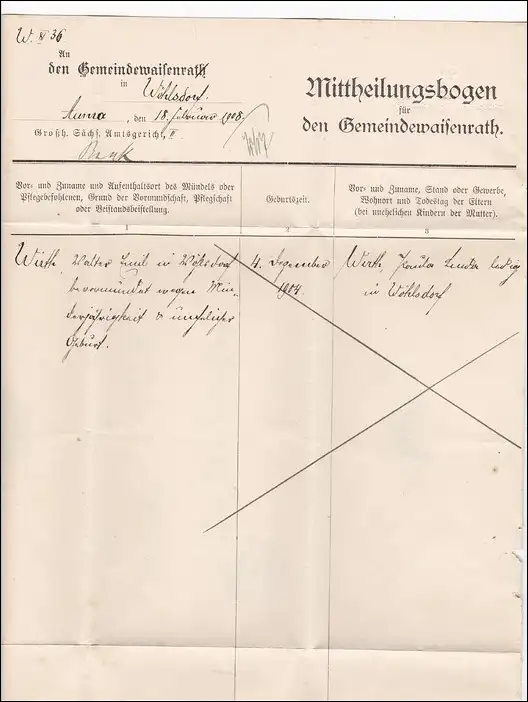 W. VI 36
An
den Gemeindewaisenrath
in
Wöhlsdorf.
Auma, den 18. Februar 1908.
Großh. Sächs. Amtsgericht, II
Mittheilungsbogen
für
den Gemeindewaisenrath.
Vor- und Zuname und Aufenthaltsort des Mündels oder
Pflegebefohlenen, Grund der Vormundschaft, Pflegschaft
oder Beistandsbestellung.
1
Geburtszeit.
2
Vor- und Zuname, Stand oder Gewerbe,
Wohnort und Todestag der Eltern
(bei unehelichen Kindern der Mutter).
3
Wirth, Walter Emil in Wöhlsdorf
bevormundet wegen Min-
derjährigkeit & unehelicher
Geburt.
4. Dezember
1904.
Wirth, Linda ledig
in Wöhlsdorf